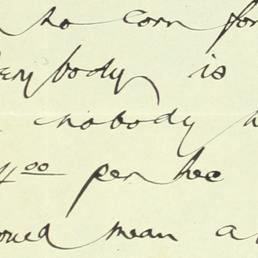 no corn for
erybody is
nobody h
4.00 per hec
ould mean a